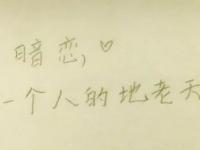 暗恋,♡
一个人的地老天